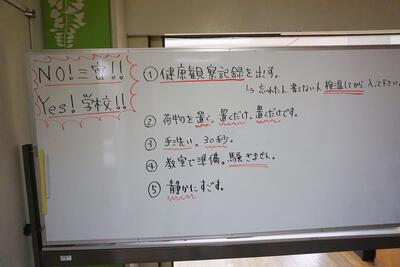 NO!三密!!
Yes!学校!!
① 健康観察記録を出す。
↳ 忘れた人、書てない人 検温してから 入って下さい。
② 荷物を置く。置くだけ。置くだけです。
③ 手洗い。30秒。
④ 教室で準備。騒ぎません。
⑤ 静かにすごす。